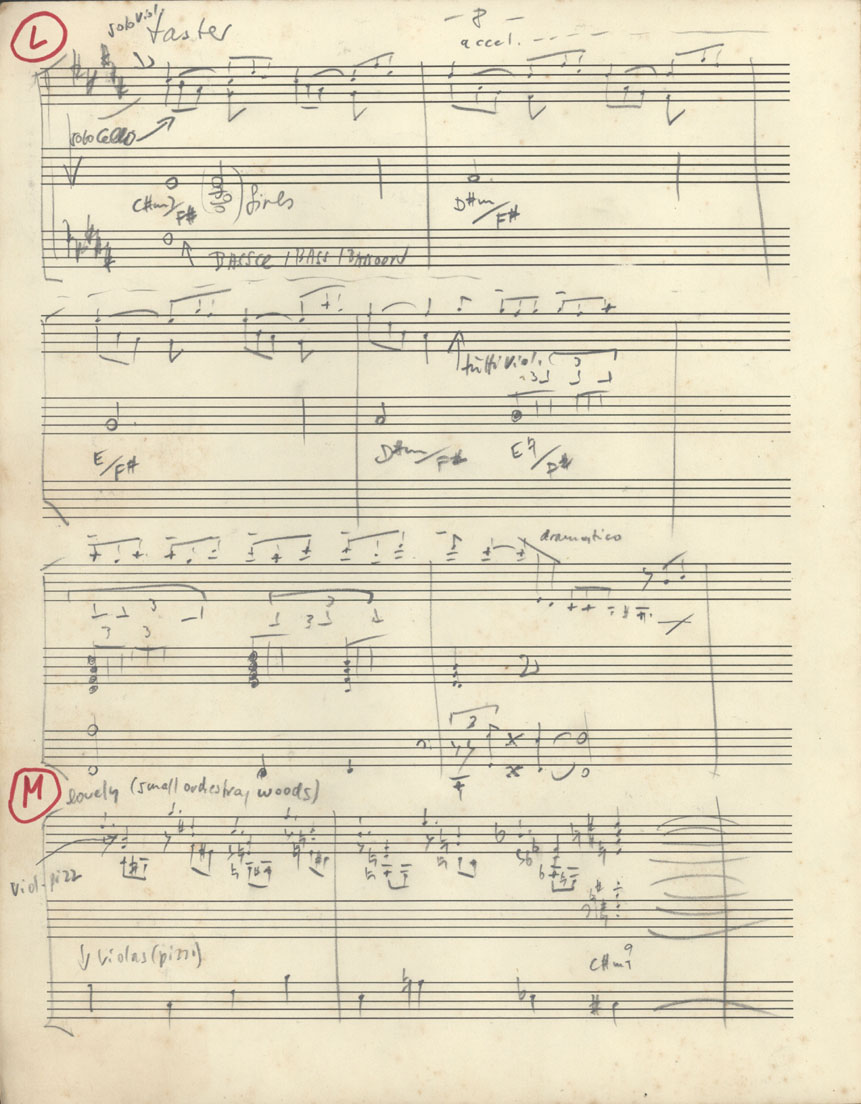 - 8 -
L
solo viol.
faster
accel.
solo Cello
C#m7/F#
D#m/F#
E/F#
tutti viol.
3
3
D#m/F#
E
dramatico
3
3
3
3
3
3
M
lovely (small orchestra, woods)
viol-pizz
Violas (pizz)
C#m7 9